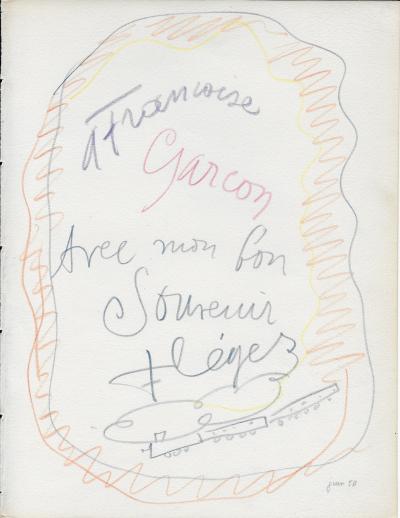 A Francoise
Garcon
Avec mon bon
Souvenir
FLéger
juin 50